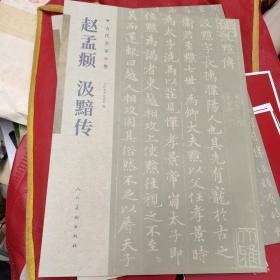 古代名家小楷
赵孟頫
汲黯传
人民美术出版社
汲黯傳
汲黯字長孺濮陽人也其先有寵於古之
衛君至黯七世世為卿大夫黯以父任孝景時
為太子洗馬以莊見憚孝景帝崩太子即
位黯為謁者東越相攻上使黯往視之不
至至吳而還報曰越人相攻固其俗然不足以辱天子